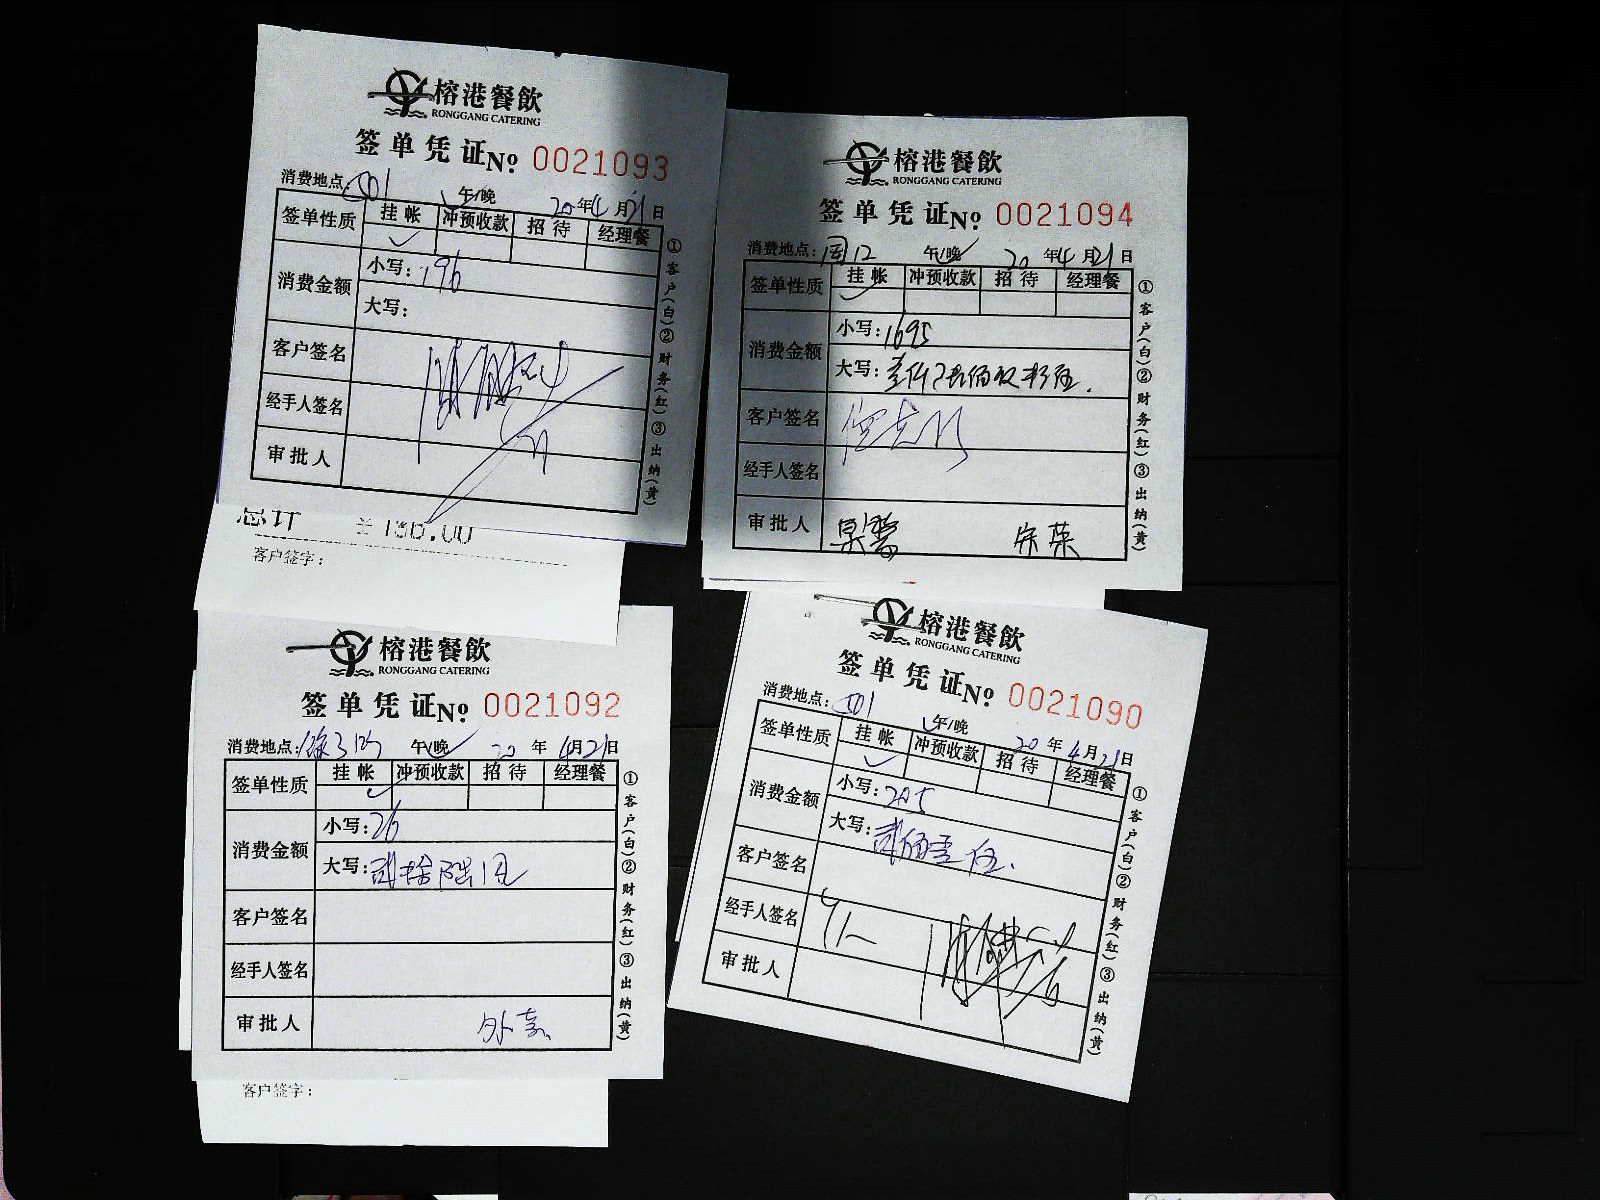 榕港餐飲
RONGGANG CATERING
签单凭证No. 0021093
消费地点: 午/晚 20年4月21日
签单性质 挂帐 冲预收款 招待 经理餐
消费金额 小写: 196
大写:
客户签名
经手人签名
审批人
①客户(白)②财务(红)③出纳(黄)
总计
客户签字:
榕港餐飲
RONGGANG CATERING
签单凭证No. 0021094
消费地点: 午/晚 20年4月21日
签单性质 挂帐 冲预收款 招待 经理餐
消费金额 小写: 1695
大写:
客户签名
经手人签名
审批人
①客户(白)②财务(红)③出纳(黄)
榕港餐飲
RONGGANG CATERING
签单凭证No. 0021092
消费地点: 午/晚 20年4月21日
签单性质 挂帐 冲预收款 招待 经理餐
消费金额 小写: 26
大写: 贰拾陆元
客户签名
经手人签名
审批人
①客户(白)②财务(红)③出纳(黄)
客户签字:
榕港餐飲
RONGGANG CATERING
签单凭证No. 0021090
消费地点: 午/晚 20年4月21日
签单性质 挂帐 冲预收款 招待 经理餐
消费金额 小写: 205
大写: 贰佰零伍.
客户签名
经手人签名
审批人
①客户(白)②财务(红)③出纳(黄)